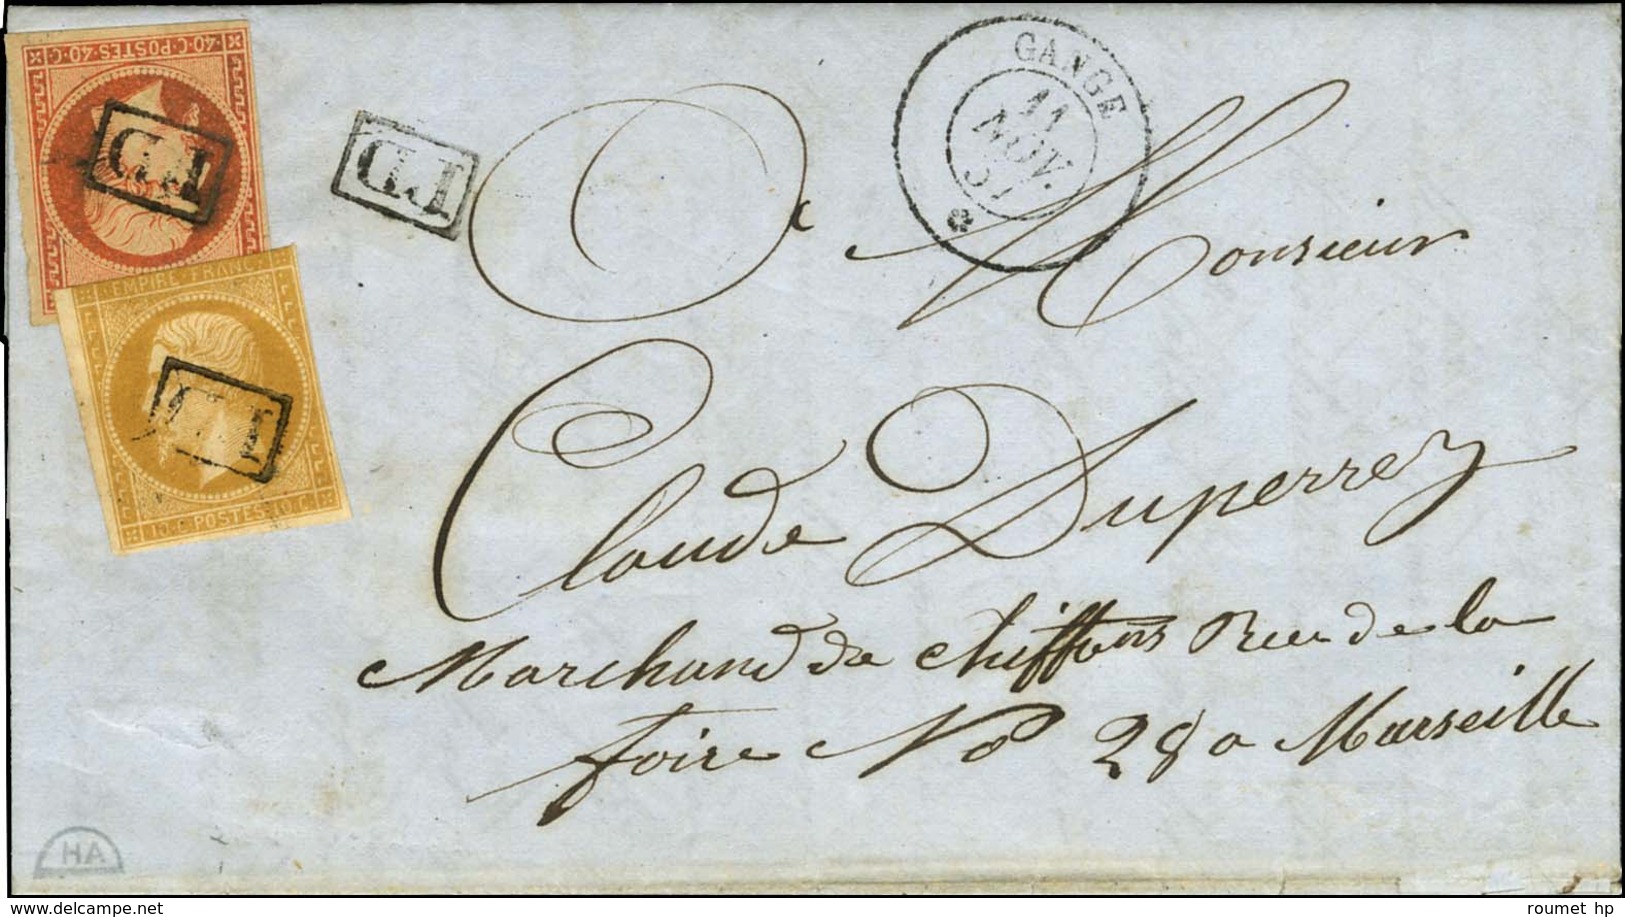 40·C·POSTES·40·C·
P.D
P.D
GANGE
11
NOV.
57
A Monsieur
EMPIRE FRANC
P.D
10·C·POSTES·10·C·
Claude Duperrey
Marchand de chiffons Rue de la
foire No 28 a Marseille
HA
www.delcampe.net
roumet hp